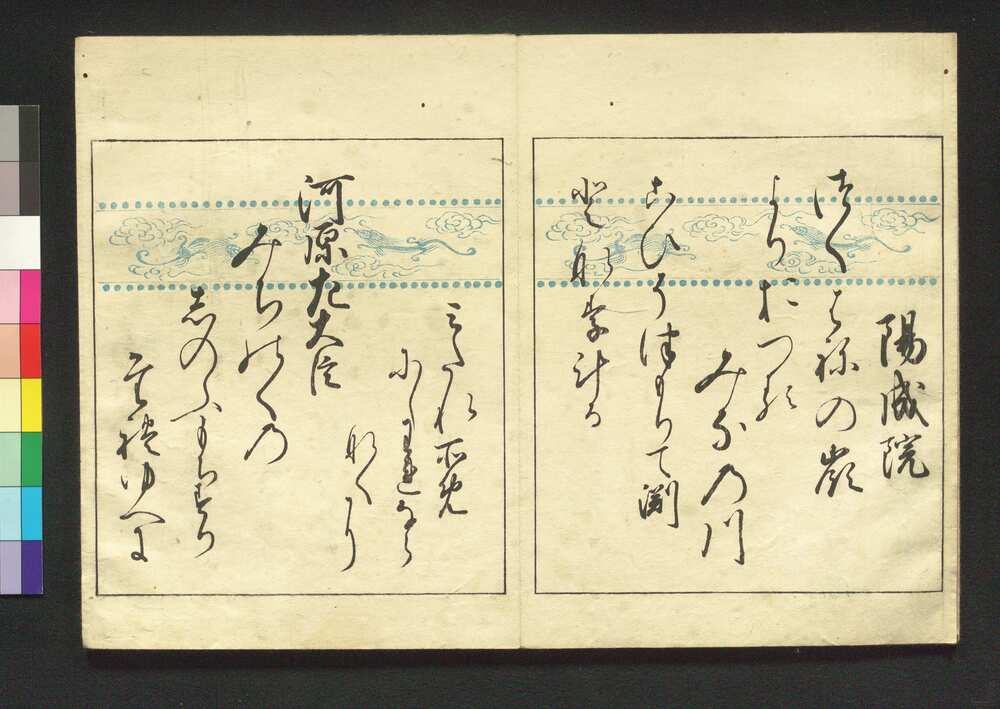 陽成院
つくはねの嶺
よりおつる
みなの川
こひそつもりて渕
となりける
河原左大臣
みちのくの
しのふもちすり
たれゆへに
みたれそめ
にしわれなら
なくに